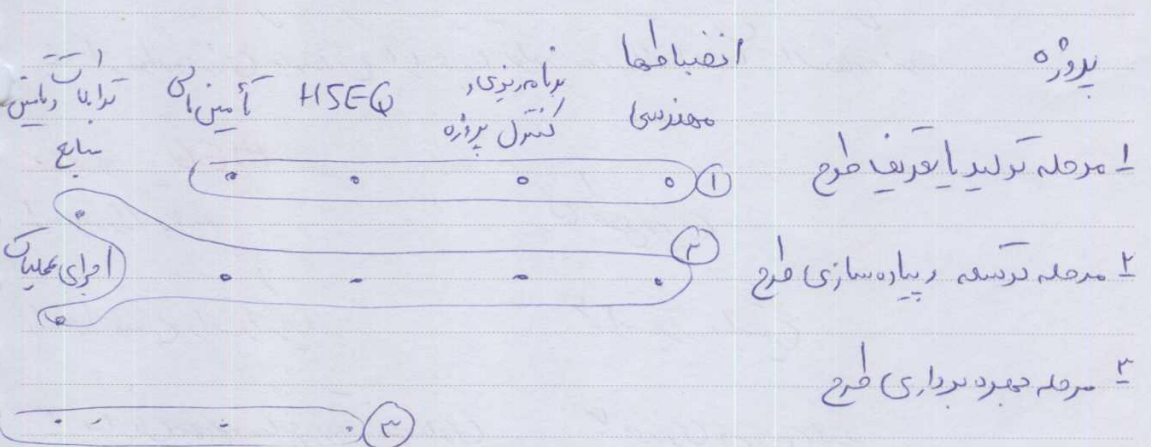 پروژه
انضباطها
مهندسی
برنامه ریزی و
کنترل پروژه
HSEQ
تأمین مالی
تدارکات و تامین
منابع
۱ مرحله تولید یا تعریف طرح
۱
۲ مرحله توسعه و پیاده سازی طرح
۲
اجرای عملیات
۳ مرحله بهره برداری طرح
۳